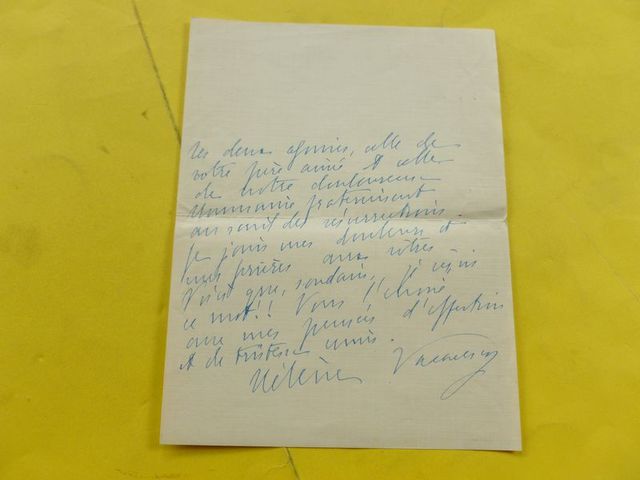 les deux agonies, celle de
votre père aimé et celle
de notre douloureuse
Roumanie fraternisent
au seuil des résurrections.
Je joins mes douleurs et
mes prières aux vôtres
Voici que, soudain, je reçois
ce mot!! Vous
avec mes pensées d'affection
et de tristesse unis.
Hélène Vacaresco